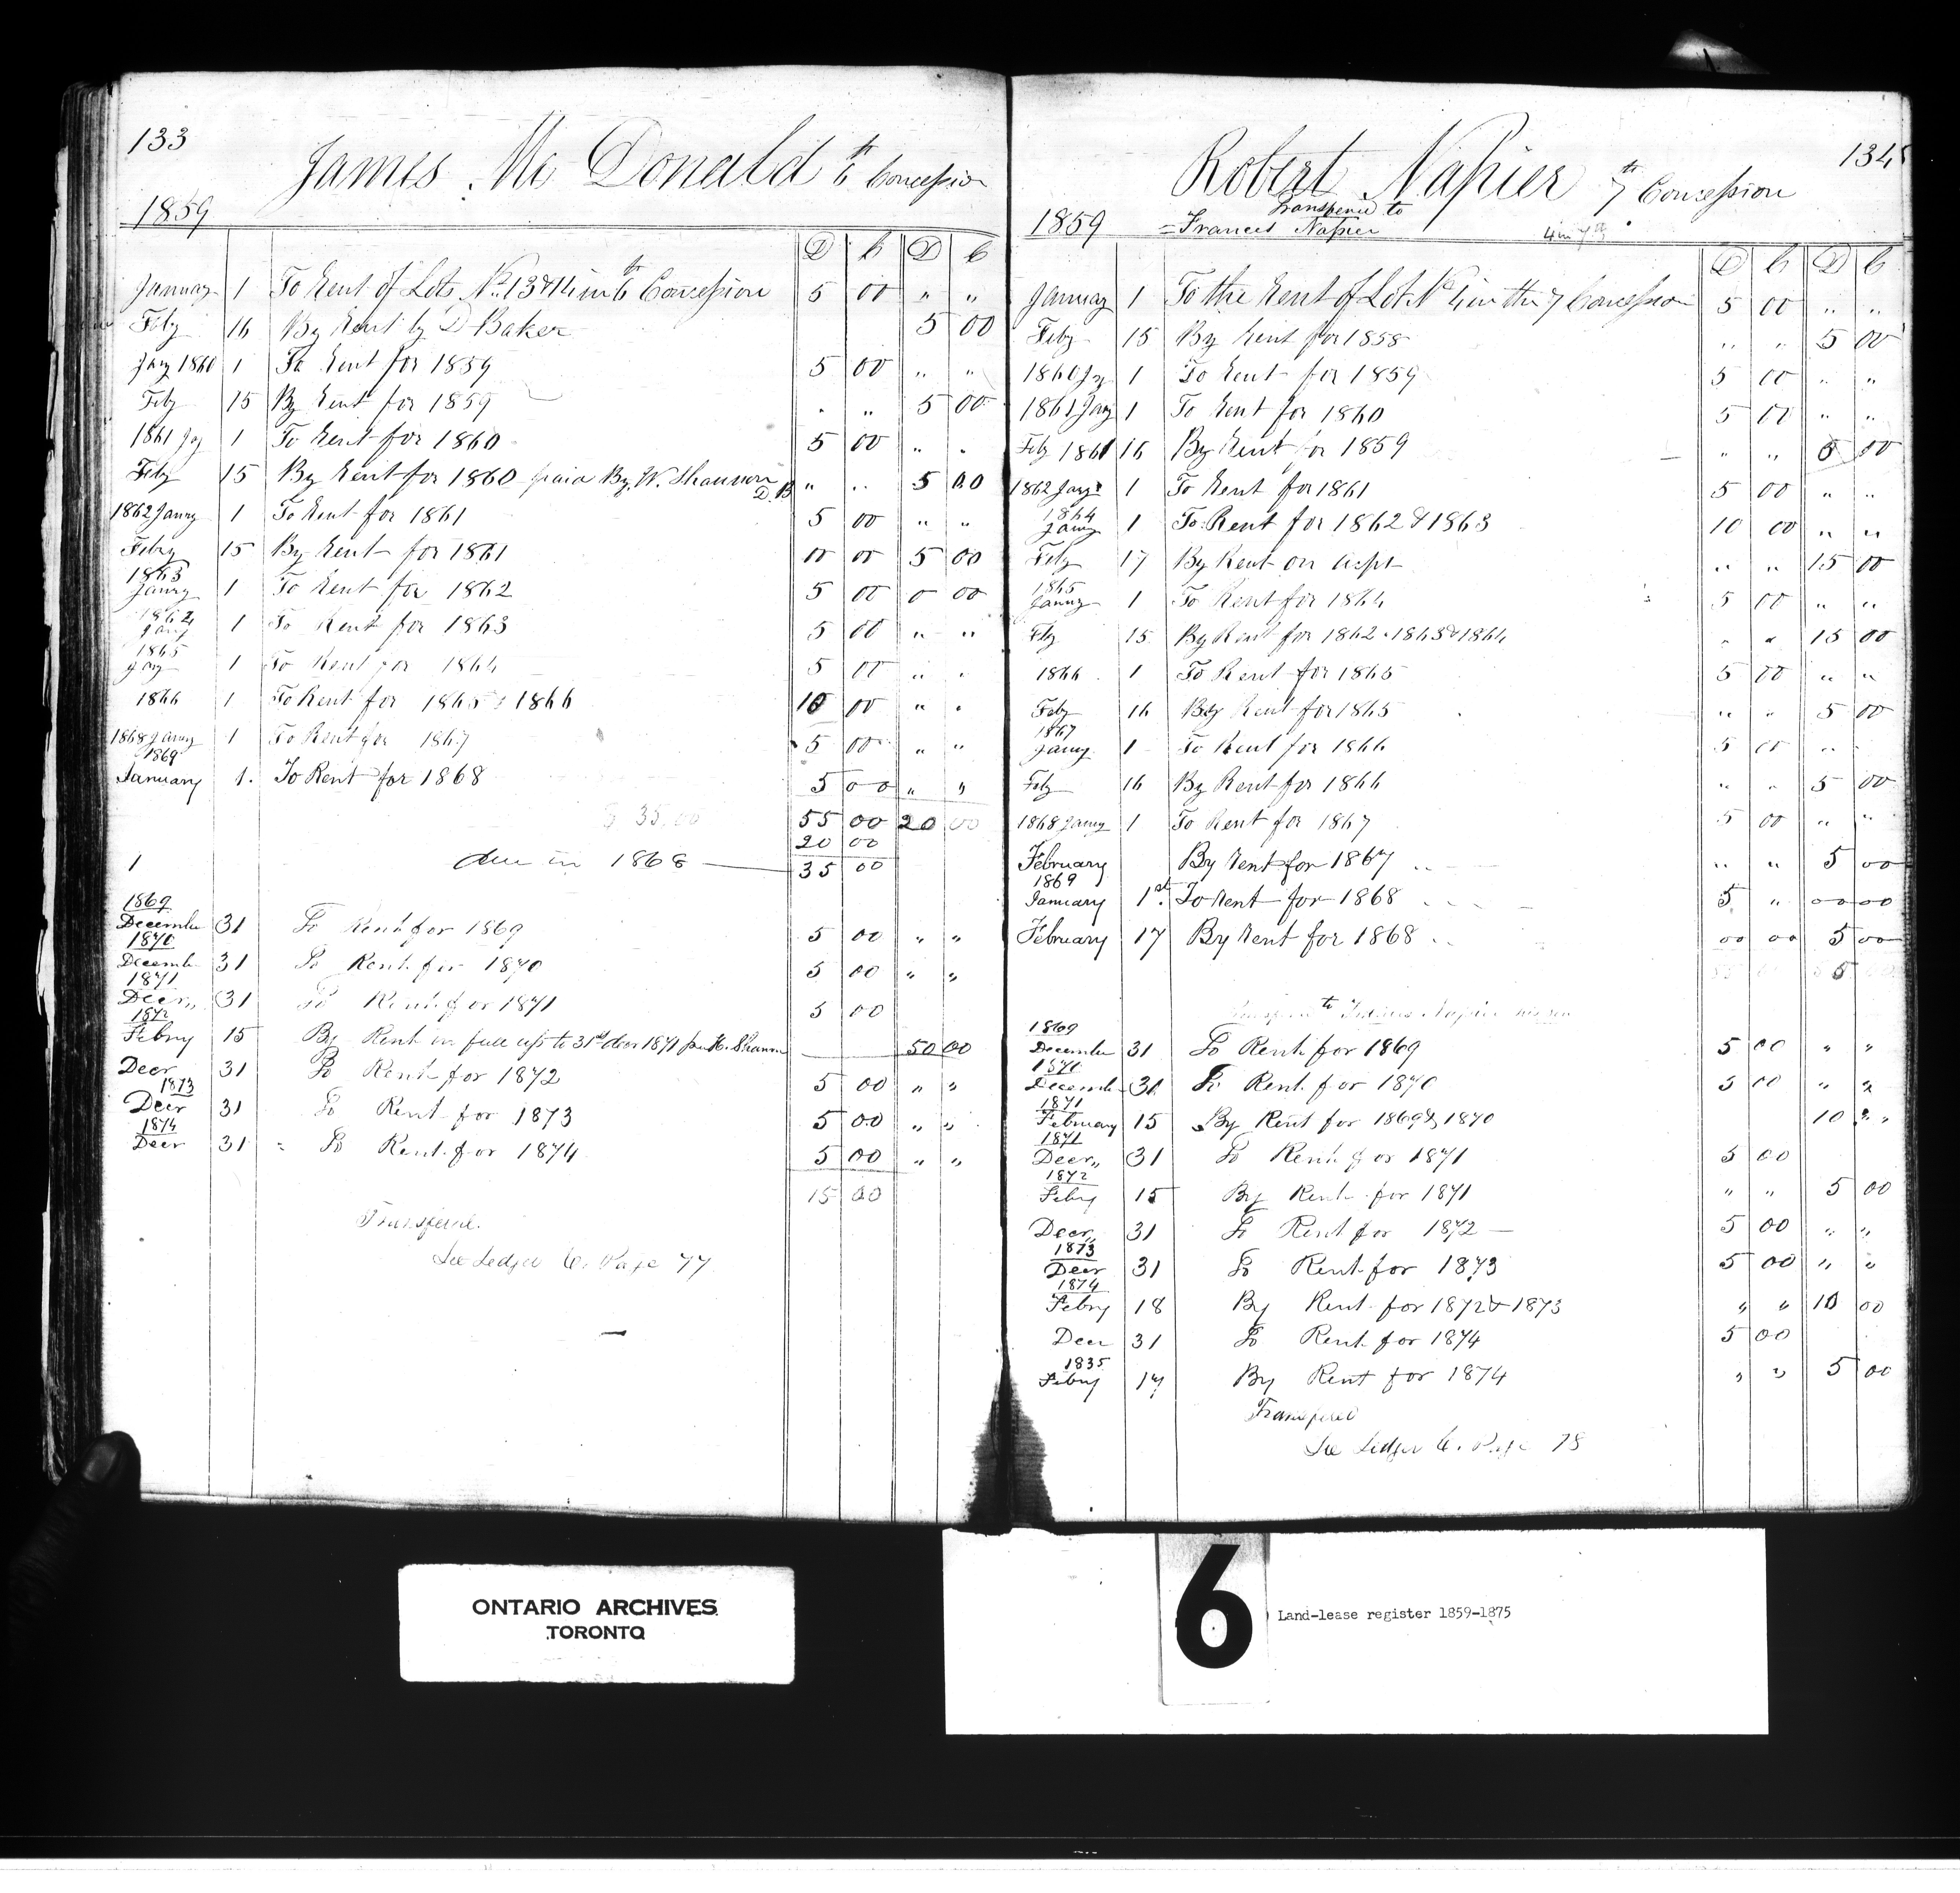 133
James Mc Donald 6th Concession
1859
D C D C
January 1 To Rent of Lots No. 13 & 14 in 6th Concession 5 00 " "
Feby 16 By Rent by D Baker 5 00
Jany 1860 1 To Rent for 1859 5 00 " "
Feby 15 By Rent for 1859 " " 5 00
1861 Jay 1 To Rent for 1860 5 00 " "
Feby 15 By Rent for 1860 paid By. W. Shannon D. B " " 5 00
1862 Janry 1 To Rent for 1861 5 00 " "
Febry 15 By Rent for 1861 00 00 5 00
1863
Janry 1 To Rent for 1862 5 00 0 00
1864
Jany 1 To Rent for 1863 5 00 " "
1865
Jay 1 To Rent for 1864 5 00 " "
1866 1 To Rent for 1865 & 1866 10 00 " "
1868 Janry 1 To Rent for 1867 5 00 " "
1869
January 1. To Rent for 1868 5 00 " "
$ 35.00 55 00 20 00
20 00
1 due in 1868 35 00
1869
December 31 To Rent for 1869 5 00 " "
1870
Decemb 31 To Rent for 1870 5 00 " "
1871
Decr,, 31 To Rent for 1871 5 00
1872
Febry 15 By Rent in full up to 31st decr 1871 50 00
Decr 31 To Rent for 1872 5 00 " "
1873
Decr 31 To Rent for 1873 5 00 " "
1874
Decr 31 To Rent for 1874 5 00 " "
15 00
Transferred.
See Ledger C. Page 77
134
Robert Napier 7th Concession
Transferred to
1859 = Frances Napier 4 in 7th
D C D C
January 1 To the Rent of Lot No 4 in the 7 Concession 5 00 " "
Feby 15 By Rent for 1858 " " 5 00
1860 Jy 1 To Rent for 1859 5 00 " "
1861 Jany 1 To Rent for 1860 5 00 " "
Feby 1861 16 By Rent for 1859 " " 5 00
1862 Jany 1 To Rent for 1861 5 00 " "
1864
Janry 1 To Rent for 1862 & 1863 10 00 " "
Feby 17 By Rent on Acpt " " 15 00
1865
Janry 1 To Rent for 1864 5 00 " "
Feby 15 By Rent for 1862 . 1863 & 1864 " " 15 00
1866 1 To Rent for 1865 5 00 " "
Feby 16 By Rent for 1865 " " 5 00
1867
Janry 1 To Rent for 1866 5 00 " "
Feby 16 By Rent for 1866 " " 5 00
1868 Janry 1 To Rent for 1867 5 00 " "
February By Rent for 1867 " " 5 00
1869
January 1st. To Rent for 1868 5 " 00 00
February 17 By Rent for 1868 00 00 5 00
1869
December 31 To Rent for 1869 5 00 " "
1870
Decemb 31 To Rent for 1870 5 00 " "
1871
February 15 By Rent for 1869 & 1870 10 " "
1871
Decr,, 31 To Rent for 1871 5 00
1872
Febry 15 By Rent for 1871 " " 5 00
Decr,, 31 To Rent for 1872 5 00 " "
1873
Decr 31 To Rent for 1873 5 00 " "
1874
Febry 18 By Rent for 1872 & 1873 " " 10 00
Decr 31 To Rent for 1874 5 00
1835
Febry 17 By Rent for 1874 " " 5 00
Transfered
See Ledger C. Page 78
ONTARIO ARCHIVES
TORONTO
6
Land-lease register 1859-1875